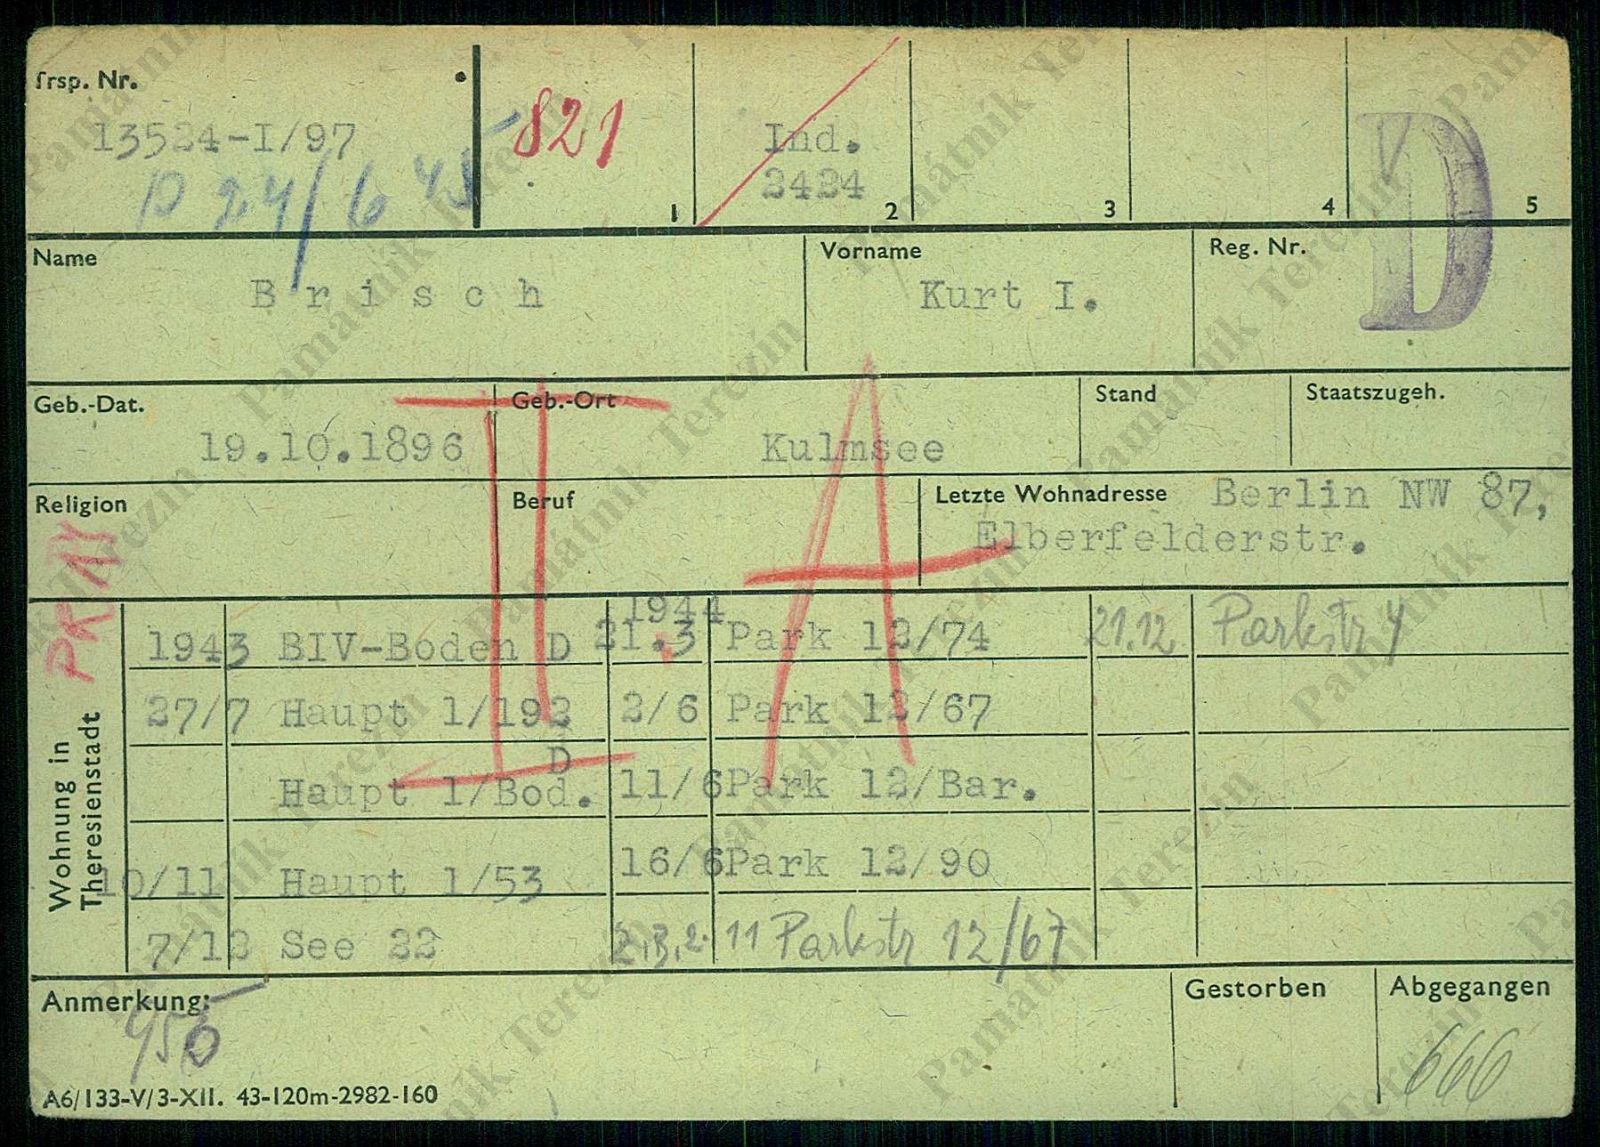 Trsp. Nr.
13524-I/97
821
Ind.
2424
1 2 3 4 5
D
Name
Brisch
Vorname
Kurt I.
Reg. Nr.
Geb.-Dat.
19.10.1896
Geb.-Ort
Kulmsee
Stand
Staatszugeh.
Religion
Beruf
Letzte Wohnadresse Berlin NW 87,
Elberfelderstr.
II A
Wohnung in
Theresienstadt
1943 BIV-Boden D
27/7 Haupt 1/192
D
Haupt 1/Bod.
10/11 Haupt 1/53
7/12 See 22
1944
21.3 Park 12/74
2/6 Park 12/67
11/6 Park 12/Bar.
16/6 Park 12/90
11 Parkstr 12/67
21.12 Parkstr
Anmerkung:
Gestorben
Abgegangen
666
A6/133-V/3-XII. 43-120m-2982-160
Památník Terezín